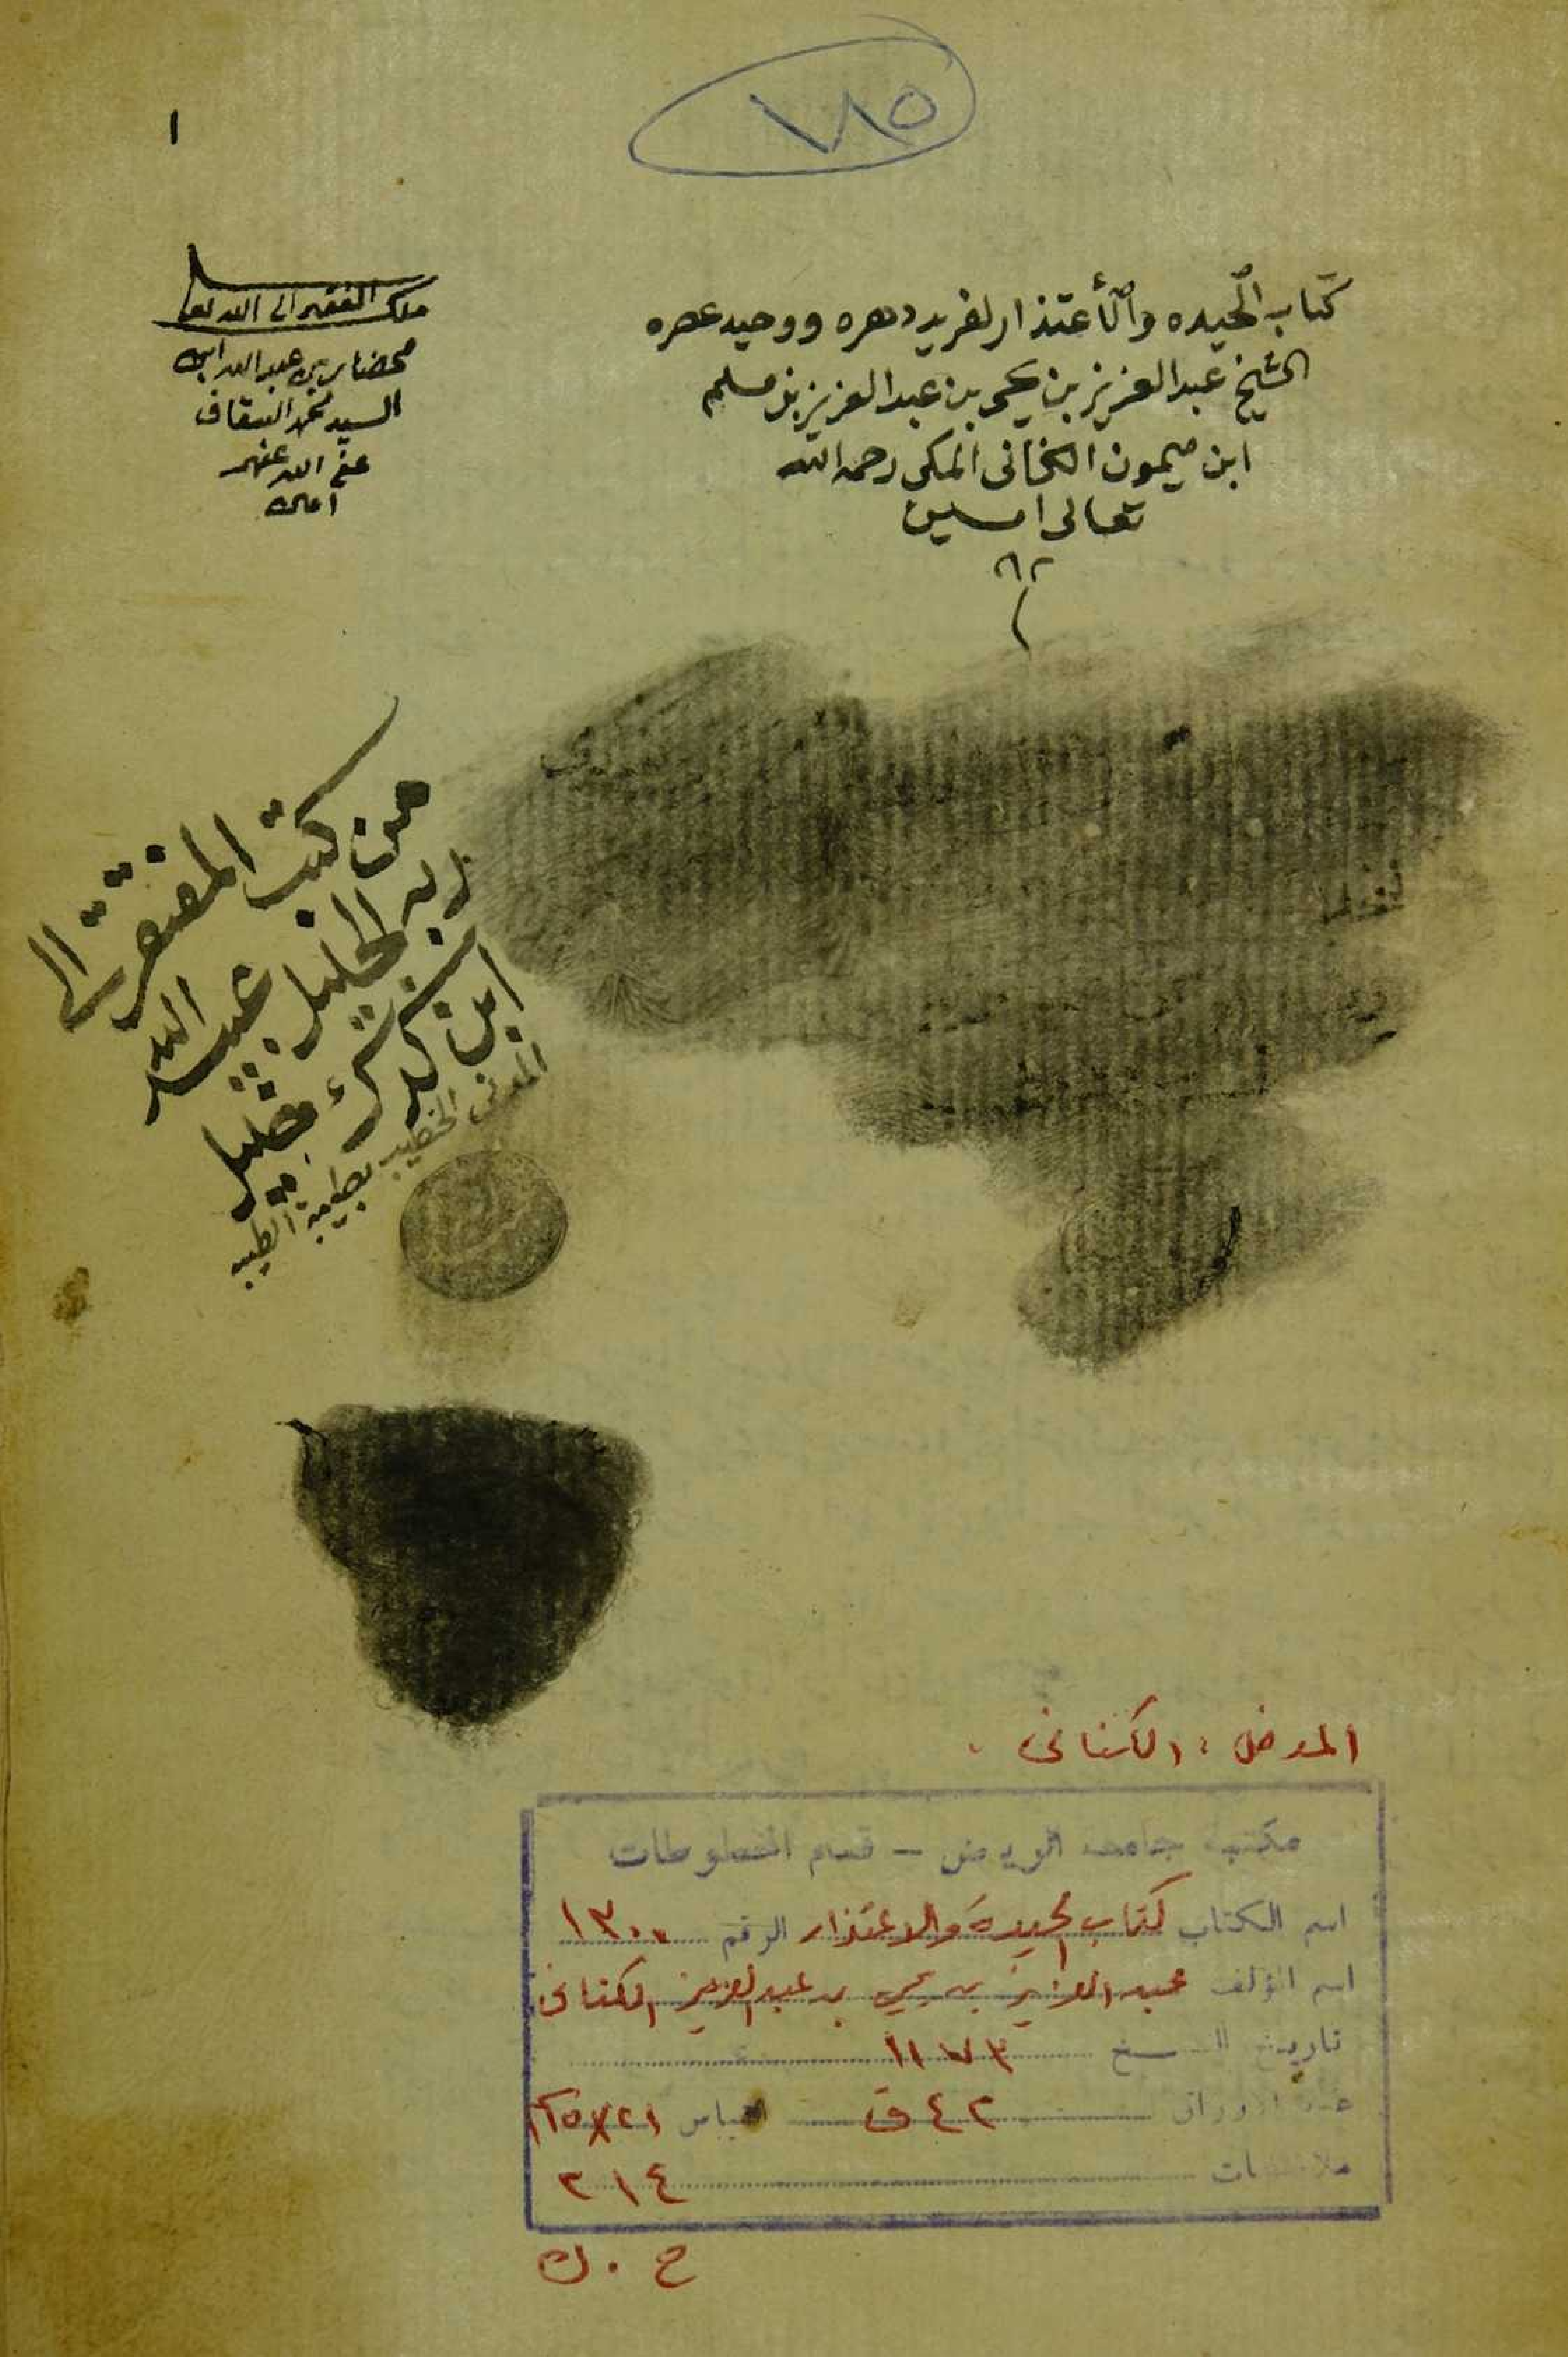 ١٨٥
١
كتاب الحيده والأعتذار لفريد دهره ووحيد عصره
الشيخ عبد العزيز بن يحيى بن عبد العزيز بن مسلم
ابن ميمون الكناني المكي رحمه الله
تعالى امـين
ملك الفقير الى الله تعا
محضار بن عبد الله ابن
السيد محمد السقاف
عفى الله عنهم
امين
من كتب المفتقر الى
ربه الجليل عبيد الله
ابن
المدني الخطيب بطيبة الطيبه
المؤلف : الكناني .
مكتبة جامعة الرياض - قسم المخطوطات
اسم الكتاب كتاب الحيدة والاعتذار الرقم ١٣٠٠
اسم المؤلف عبد العزيز بن يحيى بن عبد العزيز الكناني
تاريخ النسخ ١١٧٣
عدد الاوراق ٤٢ ق القياس
ملاحظات ٢١٤
ح . ك